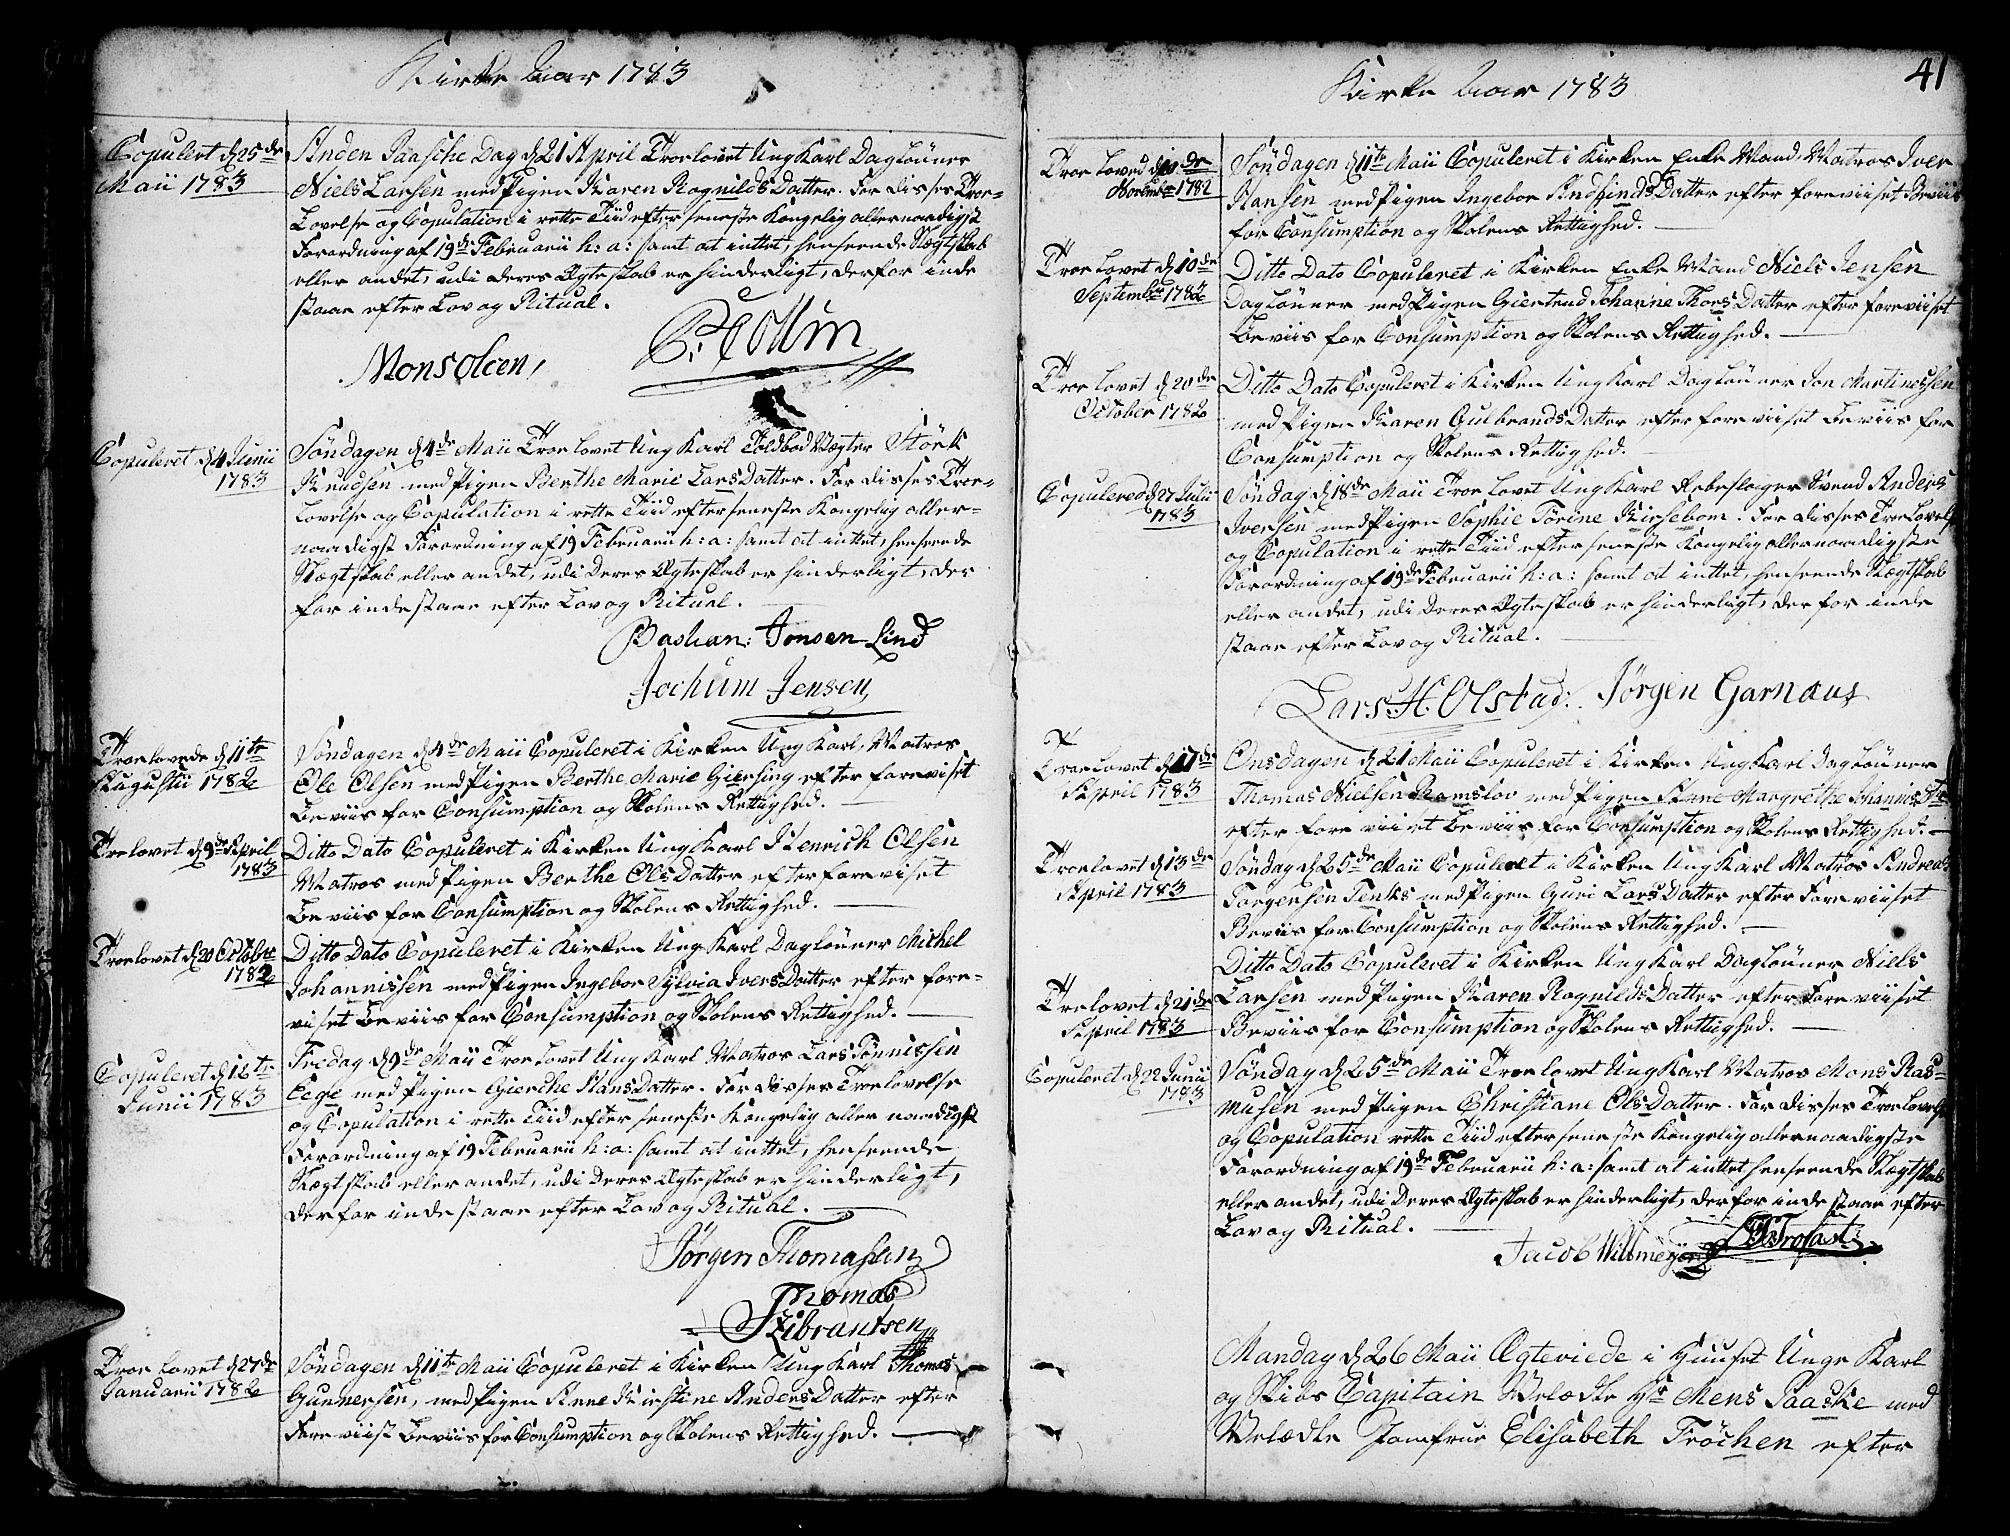 Kirke Aar 1783
Copulert d 25de
Maii 1783
Anden Paasche Dag d 21 April Troelovet Ung Karl Daglønner
Niels Larsen med Pigen Karen Rognilds Datter. For disses Troe-
Lovelse og Copulation i rette Tiid efter seneste Kongelig allernaadigst
Forordning af 19de Februarii h: a: samt at inttet, henseende Slægtskab
eller andet, udi deres Ægteskab er hinderligt, derfor inde
staar efter Lov og Ritual.
Mons olsen,
Copuleret d 4 Junii
1783
Søndagen d 4de Maii Troelovet Ung Karl Toldbod Vægter Störk
Knudsen med Pigen Berthe Marie Lars Datter. For disses Troe-
Lovelse og Copulation i rette Tiid efter seneste Kongelig aller-
naadigst Forordning af 19 Februarii h: a: samt at inttet, henseende
Slægtskab eller andet, udi Deres Ægteskab er hinderligt, der
for indestaar efter Lov og Ritual.
Bastian: Jonsen Lind
Jochum Jensen,
Troelovede d 11te
Augustii 1782
Søndagen d 4de Maii Copuleret i Kirken Ung Karl, Matros
Ole Olsen med Pigen Berthe Marie Giersing efter foreviset
Beviis for Consumption og Skolens Rettighed.
Trolovet d 9de April
1783
Ditto Dato Copuleret i Kirken Ung Karl Henrich Olsen
Matros med Pigen Berthe Ols Datter efter foreviset
Beviis for Consumption og Skolens Rettighed.
Troelovet d 20 Octobr
1782
Ditto Dato Copuleret i Kirken Ung Karl Daglønner Michel
Johannissen med Pigen Ingebor Sylvia Ivers Datter efter fore-
viset Beviis for Consumption og Skolens Rettighed.
Copuleret d 12te
Junii 1783
Fredag d 9de Maii Troelovet Ung Karl Matros Lars Tønnissen
Eege med Pigen Gierthe Hans Datter. For disses Trolovelse
og Copulation i rette Tiid efter seneste Kongelig aller naadigst
Forordning af 19 Februarii h: a: samt at inttet, henseende
Slægtskab eller andet, udi Deres Ægteskab er hinderligt,
derfor indestaar efter Lov og Ritual.
Jørgen Thomassen
Thomas
Zibrantsen
Troelovet d 27de
Januarii 1782
Søndagen d 11te Maii Copuleret i Kirken Ung Karl Thomas
Gunnersen, med Pigen Anne Kirstine Anders Datter efter
Foreviist Beviis for Consumption og Skolens Rettighed.
Kirke Aar 1783
41
Troe Loved d 10de
Novembr 1782
Søndagen d 11te Maii Copuleret i Kirken Enke Mand, Matros Iver
Hansen med Pigen Ingebor Datter efter foreviiset Beviis
for Consumption og Skolens Rettighed.
Troe Lovet d 10de
Septembr 1782
Ditto Dato Copuleret i Kirken Enke Mand Niels Jensen
Daglønner med Pigen Giertrud Johanne Thors Datter efter foreviiset
Beviis for Consumption og Skolens Rettighed.
Troe Lovet d 20de
October 1782
Ditto Dato Copuleret i Kirken Ung Karl Daglønner Jon Martinussen
med Pigen Karen Gulbrands Datter efter foreviiset Beviis for
Consumption og Skolens Rettighed.
Copulered d 27 Julii
1783
Søndag d 18de Maii Troe Lovet Ung Karl Rebeslager Svend Anders
Iversen med Pigen Sophie Törine Kirsebom. For disses Troe Lovelse
og Copulation i rette Tiid efter seneste Kongelig allernaadigste
Forordning af 19de Februarii h: a: samt at inttet, henseende Slægtskab
eller andet, udi Deres Ægteskab er hinderligt, derfor inde
staar efter Lov og Ritual.
Lars. H. Olstad: Jørgen Garnaas
Troelovet d 17de
April 1783
Onsdagen d 21 Maii Copuleret i Kirken Ung Karl Daglønner
Thomas Nielsen Ramslov med Pigen Anne Margrethe Johannis Dtr
efter foreviiset Beviis for Consumption og Skolens Rettighed.
Troelovet d 13de
April 1783
Søndag d 25de Maii Copuleret i Kirken Ung Karl Matros Andreas
Torgersen Tenks med Pigen Guri Lars Datter efter Foreviiset
Beviis for Consumption og Skolens Rettighed.
Trolovet d 21de
April 1783
Ditto Dato Copuleret i Kirken Ung Karl Dagløuner Niels
Larsen med Pigen Karen Rognilds Datter efter Foreviiset
Beviis for Consumption og Skolens Rettighed.
Copuleret d 22 Junii
1783
Søndag d 25de Maii Troelovet Ung Karl Matros Mons Ras-
musen med Pigen Christiane Ols Datter. For disses Troe Lovelse
og Copulation rette Tiid efter seneste Kongelig allernaadigste
Forordning af 19de Februarii h: a: samt at inttet henseende Slægtskab
eller andet, udi Deres Ægteskab er hinderligt, derfor inde staar efter
Lov og Ritual.
Jacob
Mandag d 26 Maii Ægteviede i Huuset Unge Karl
og Skibs Capitain Velædle Hr Mens Paaske med
Velædle Jomfrue Elisabeth Tröchen efter